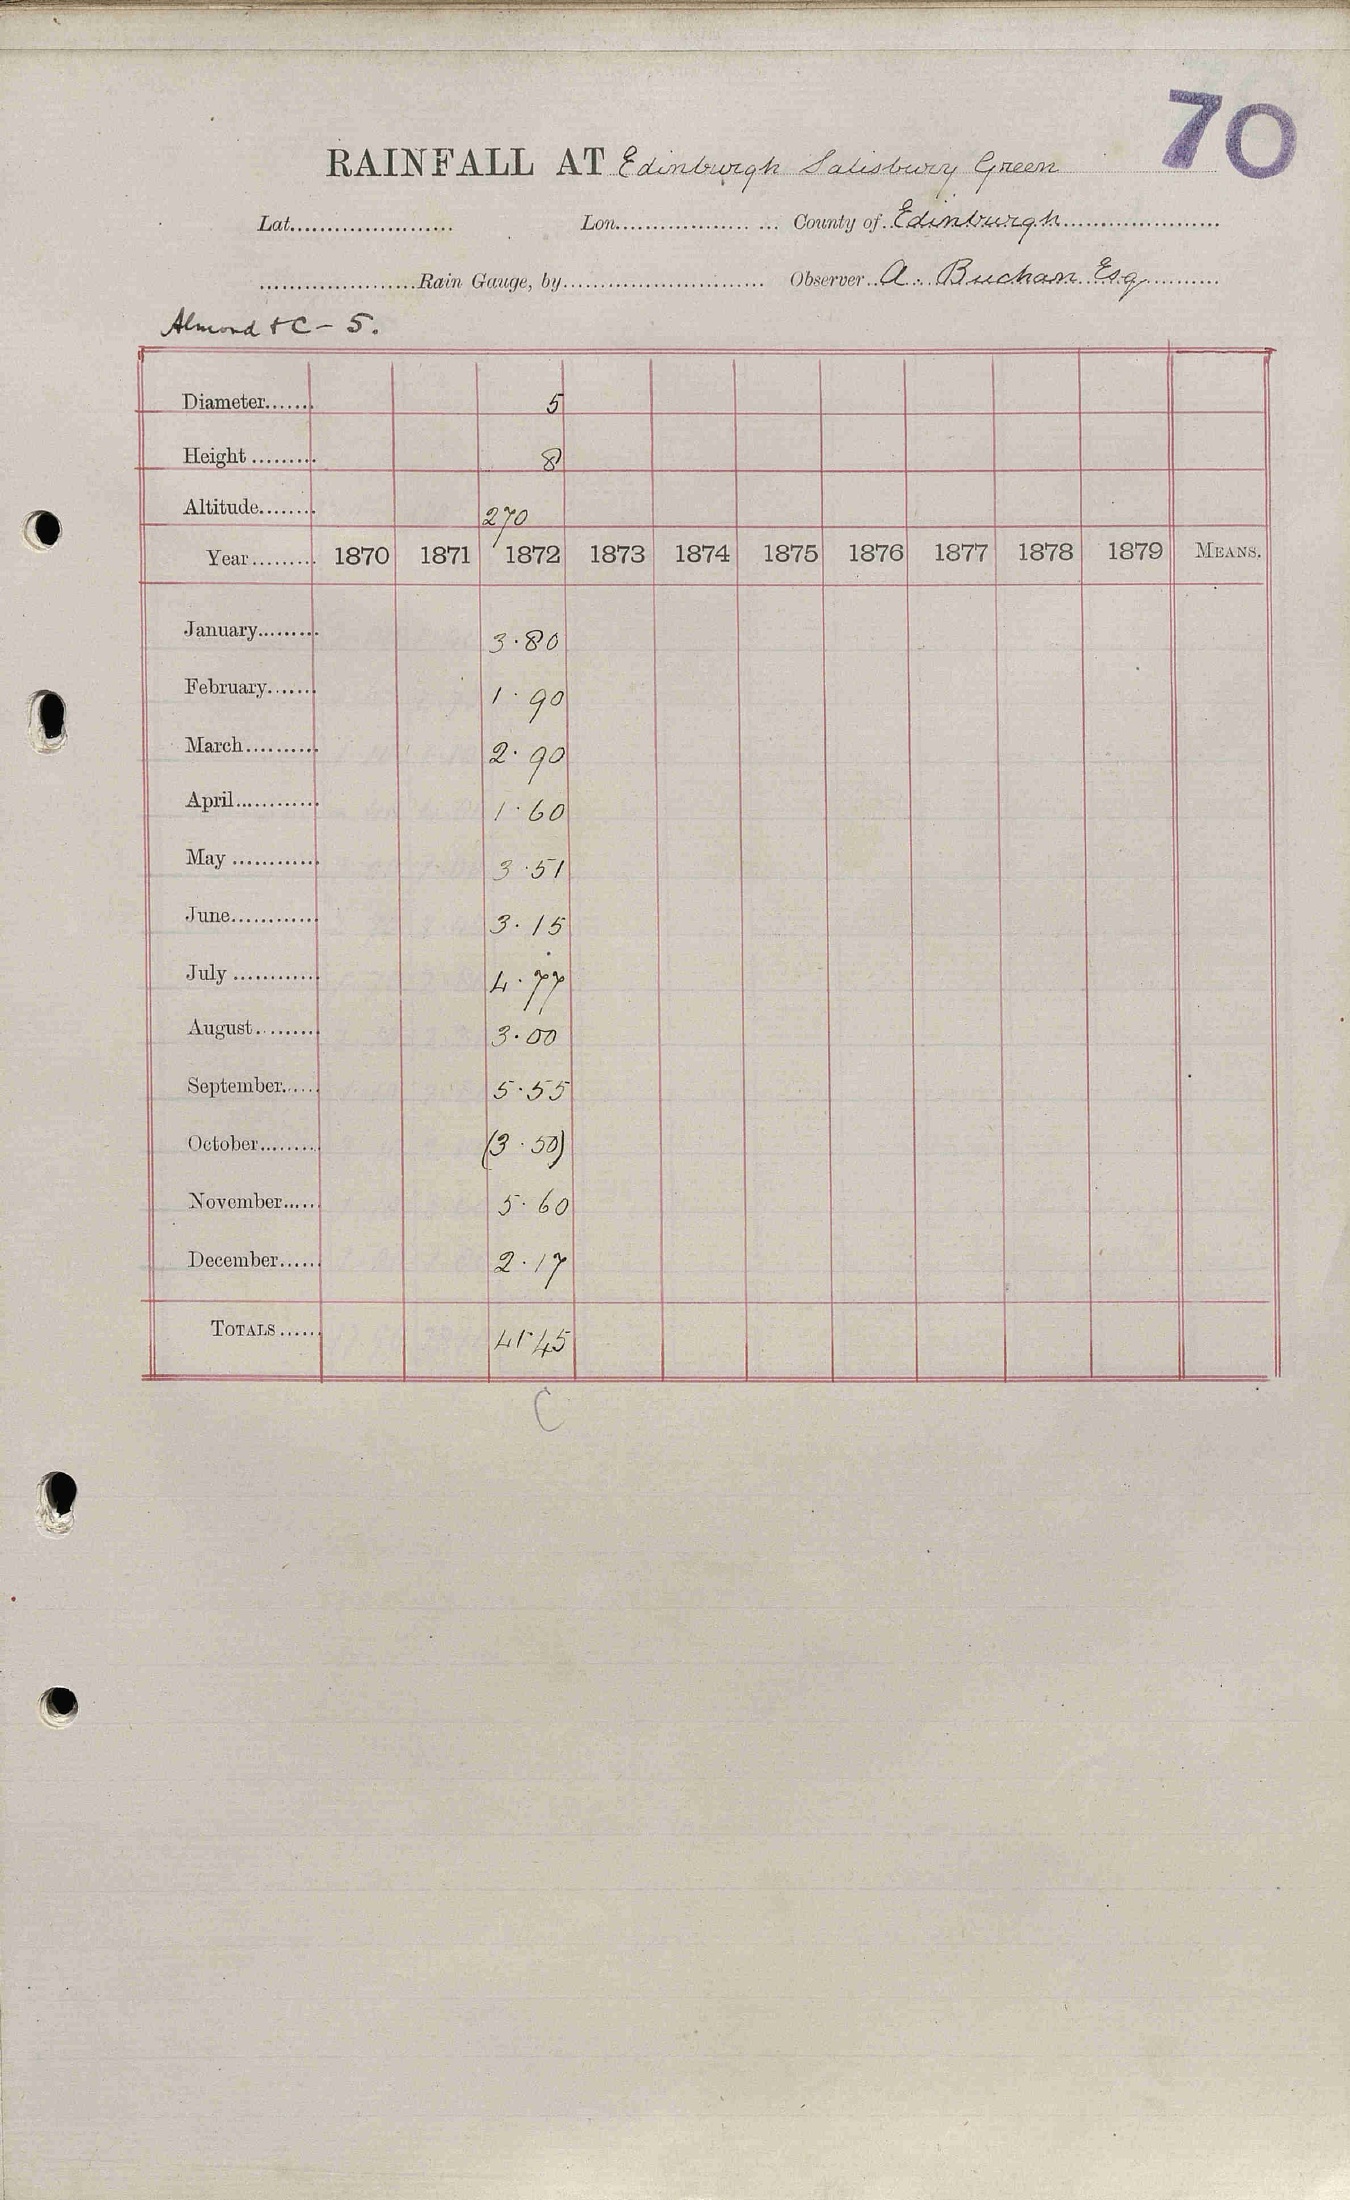 70
RAINFALL AT Edinburgh Salisbury Green
Lat...................... Lon...................... County of Edinburgh
......................Rain Gauge, by............................ Observer A. Buchan Esq
Almond & C - 5.
Diameter....... 5
Height ......... 8
Altitude........ 270
Year......... 1870 1871 1872 1873 1874 1875 1876 1877 1878 1879 MEANS.
January......... 3.80
February....... 1.90
March.......... 2.90
April............ 1.60
May ............ 3.51
June............ 3.15
July ............ 4.77
August......... 3.00
September...... 5.55
October......... (3.50)
November..... 5.60
December...... 2.17
TOTALS...... 41.45
C